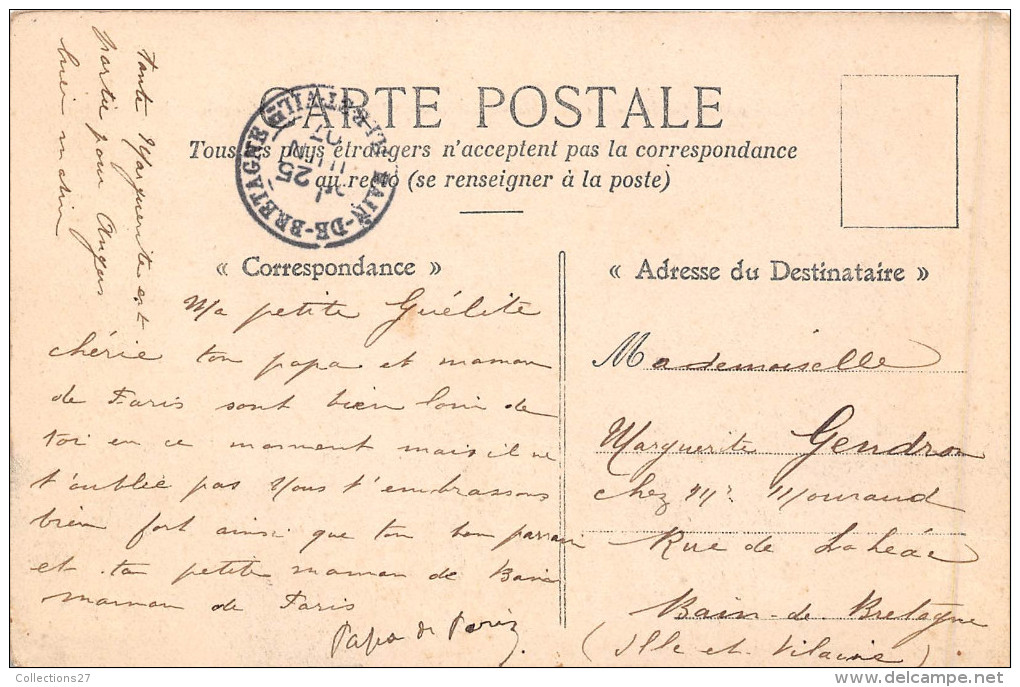 tante Marguerite est
partie pour Angers
hier matin
CARTE POSTALE
Tous les pays étrangers n'acceptent pas la correspondance
au recto (se renseigner à la poste)
BAIN-DE-BRETAGNE
25
JUIN
07
« Correspondance »
Ma petite Guélite
chérie ton papa et maman
de Paris sont bien loin de
toi en ce moment mais il ne
t'oublie pas Nous t'embrassons
bien fort ainsi que ton bon parrain
et ta petite maman de Bain
maman de Paris
Papa de Paris
« Adresse du Destinataire »
Mademoiselle
Marguerite Gendron
chez Mr Mouraud
Rue de
Bain-de-Bretagne
(Ille et Vilaine)
Collections27
www.delcampe.net